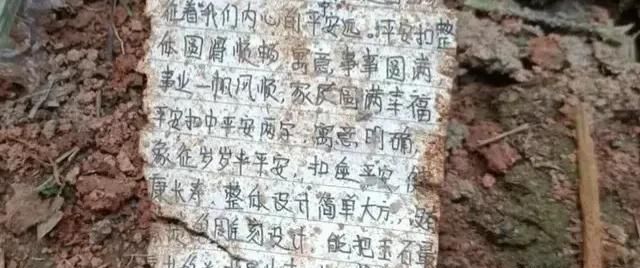 征着我们内心的平安远。平安扣整
体圆滑顺畅 寓意事事圆满,
事业一帆风顺,家庭圆满幸福
平安扣中平安两字,寓意明确,
象征岁岁平安,扣住平安,健
康长寿,整体设计简单大方,
雕刻设计,能把玉石最